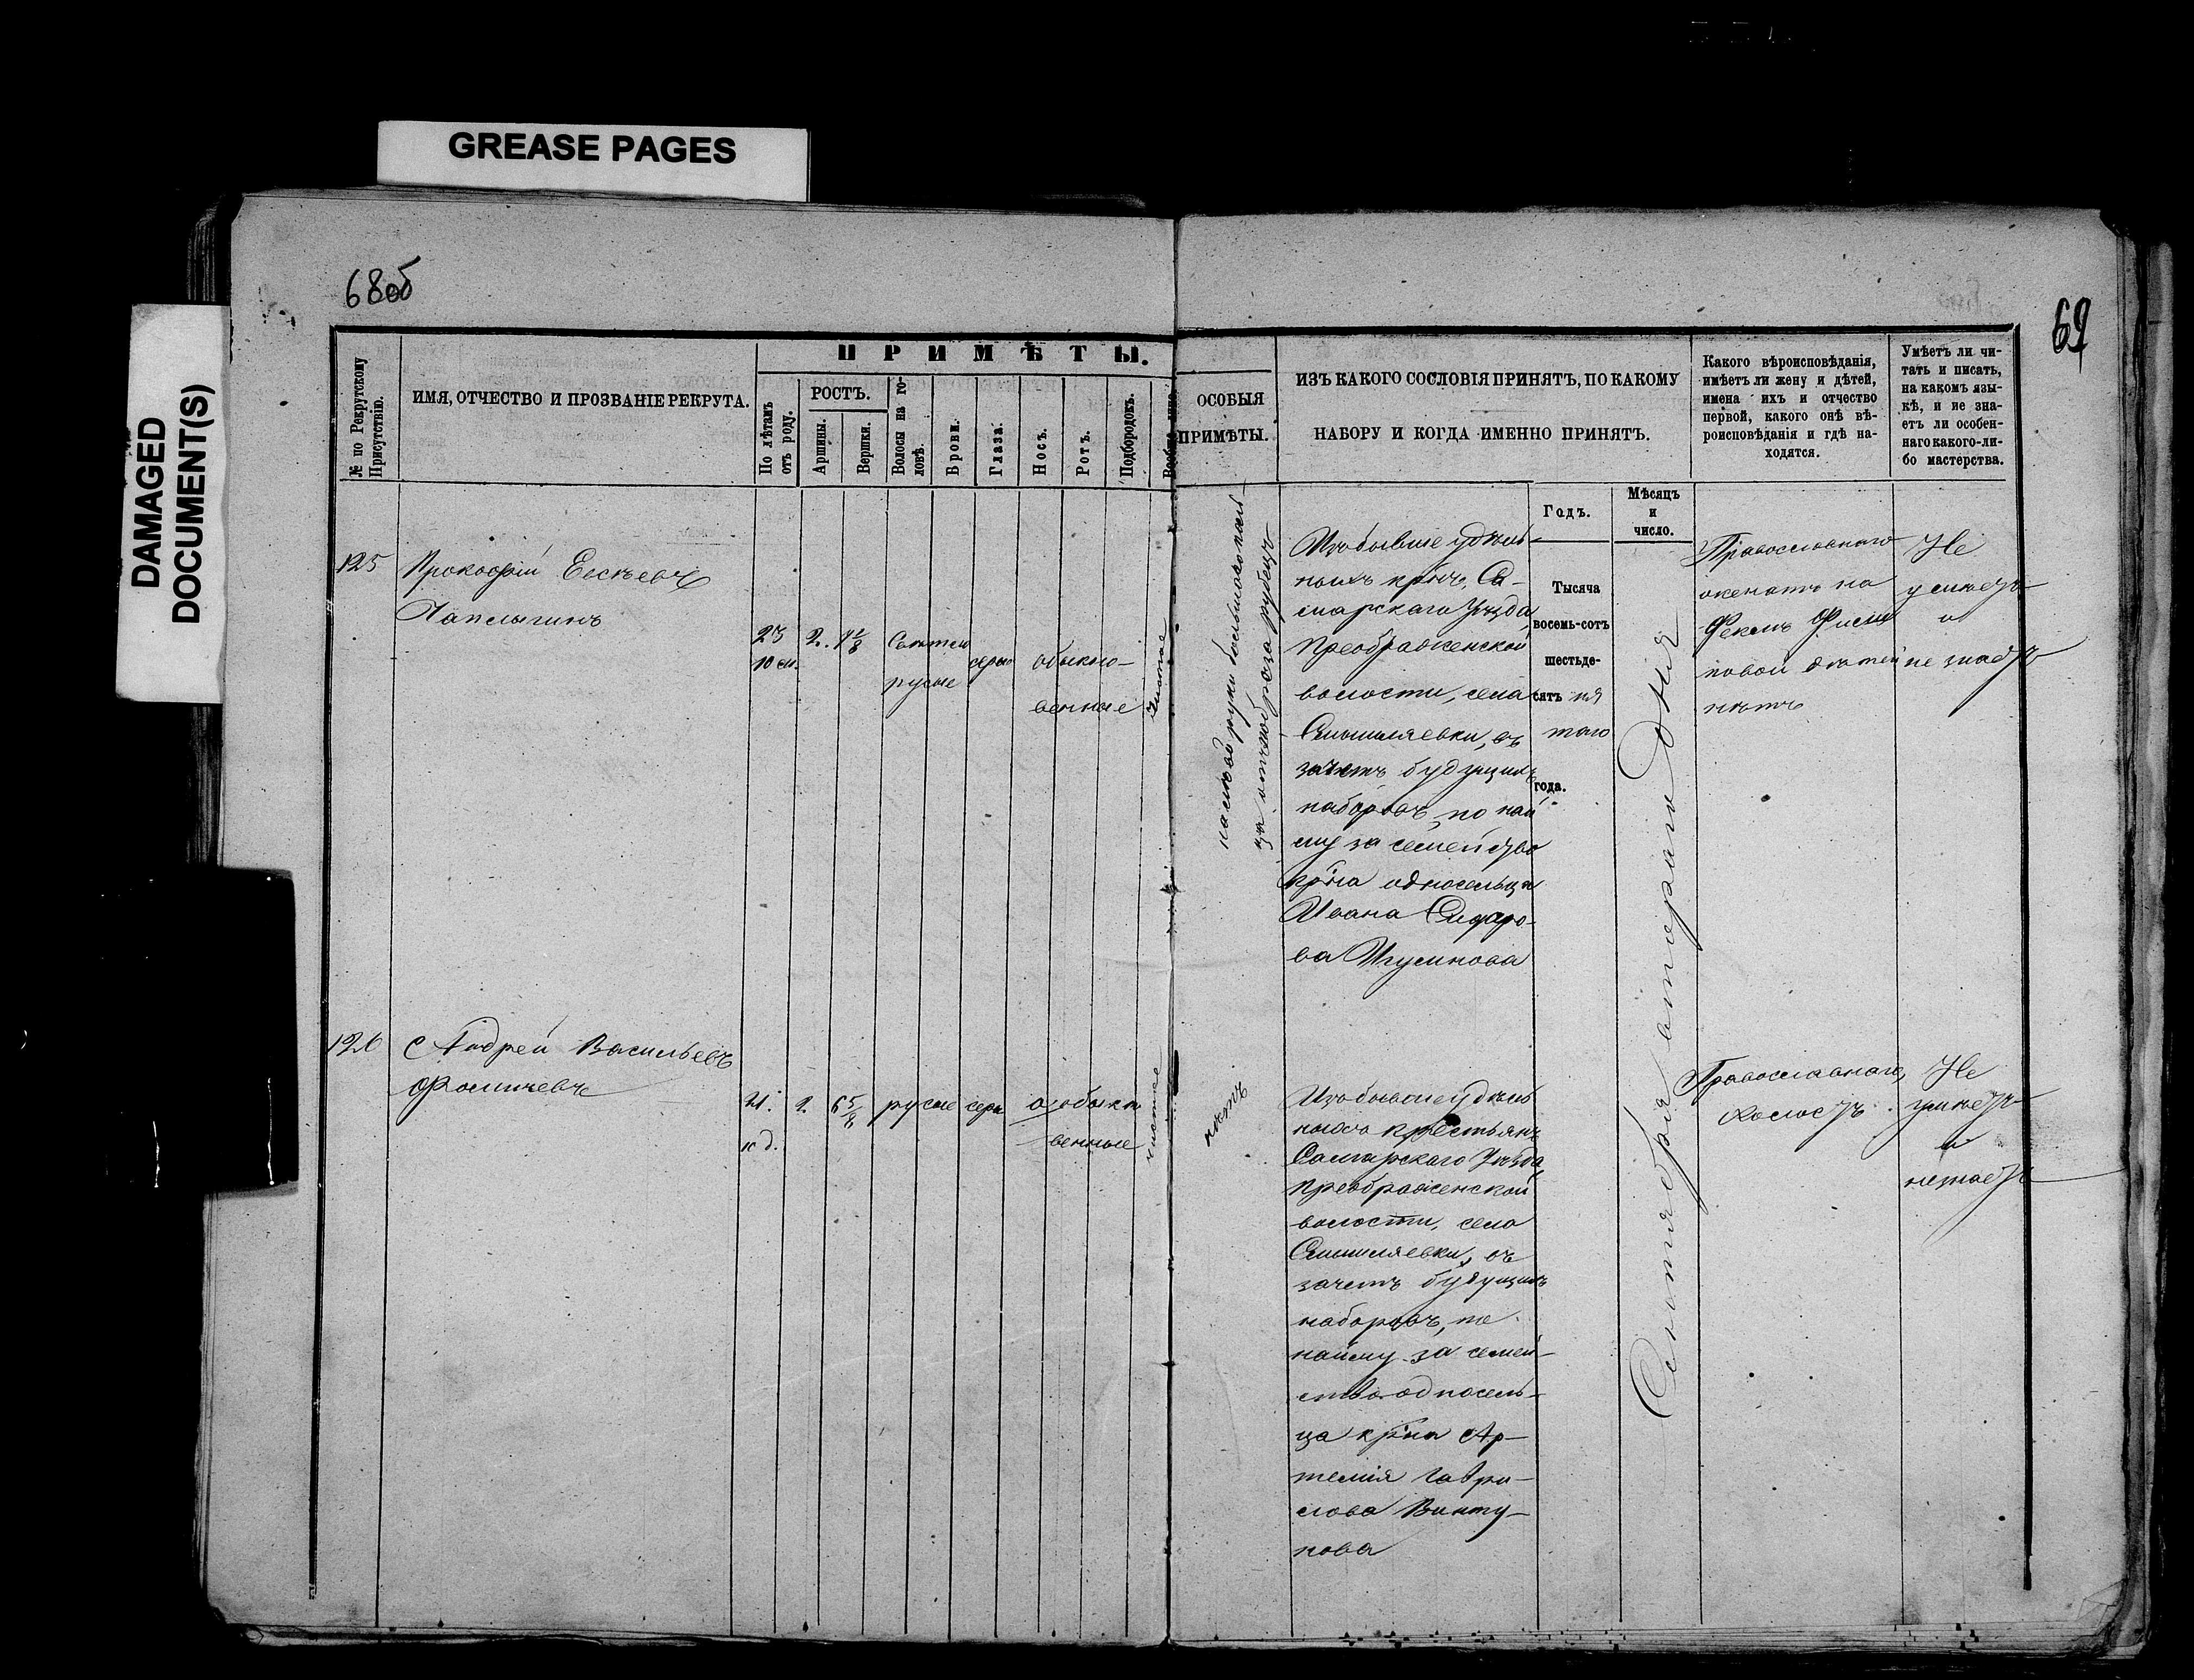 GREASE PAGES
DAMAGED
DOCUMENT(S)
68об
69
№ по Рекрутскому
Присутствію.
ИМЯ, ОТЧЕСТВО И ПРОЗВАНІЕ РЕКРУТА.
ПРИМѢТЫ.
По лѣтамъ
отъ роду.
РОСТЪ.
Аршины.
Вершки.
Волосы на го-
ловѣ.
Брови.
Глаза.
Носъ.
Ротъ.
Подбородокъ.
Вообще лице.
ОСОБЫЯ
ПРИМѢТЫ.
ИЗЪ КАКОГО СОСЛОВІЯ ПРИНЯТЪ, ПО КАКОМУ
НАБОРУ И КОГДА ИМЕННО ПРИНЯТЪ.
Какого вѣроисповѣданія,
имѣетъ ли жену и дѣтей,
имена ихъ и отчество
первой, какого онѣ вѣ-
роисповѣданія и гдѣ на-
ходятся.
Умѣетъ ли чи-
тать и писать,
на какомъ язы-
кѣ, и не зна-
етъ ли особен-
наго какого-ли-
бо мастерства.
Годъ.
Мѣсяцъ
и
число.
125
Прокофій Евсѣевъ
Чаплыгинъ
23
10 м.
2.
Свѣтло
русые
серые
обыкно-
венные
Чистое
на лѣвой руки
рубецъ
Изъ бывше удѣль
ныхъ крнъ, Са-
марскаго Уѣзда
Преображенской
волости, села
Смышляевки, въ
зачетъ будущихъ
наборовъ, по най
му за семейство
крна односельца
Ивана Сидоро-
ва
Тысяча
восемь-сотъ
шестьде-
сятъ пя
таго
года.
Сентября втораго дня
Православнаго
женатъ на
Феклѣ
новой дѣтей
нѣтъ
Не
умѣетъ
и
не знаетъ
126
Андрей Васильевъ
Фомичевъ
21.
2.
6 5/8
русые
серы
обыкно
венные
чистое
нѣтъ
Изъ бывше удѣль
ныхъ крестьянъ
Самарскаго Уѣзда
Преображенской
волости, села
Смышляевки, въ
зачетъ будущихъ
наборовъ, по
найму за семей-
ство односель-
ца крна Ар-
темія Гаври-
лова Винту-
нова
Православнаго,
Холостъ
Не
умѣетъ
и
незнаетъ